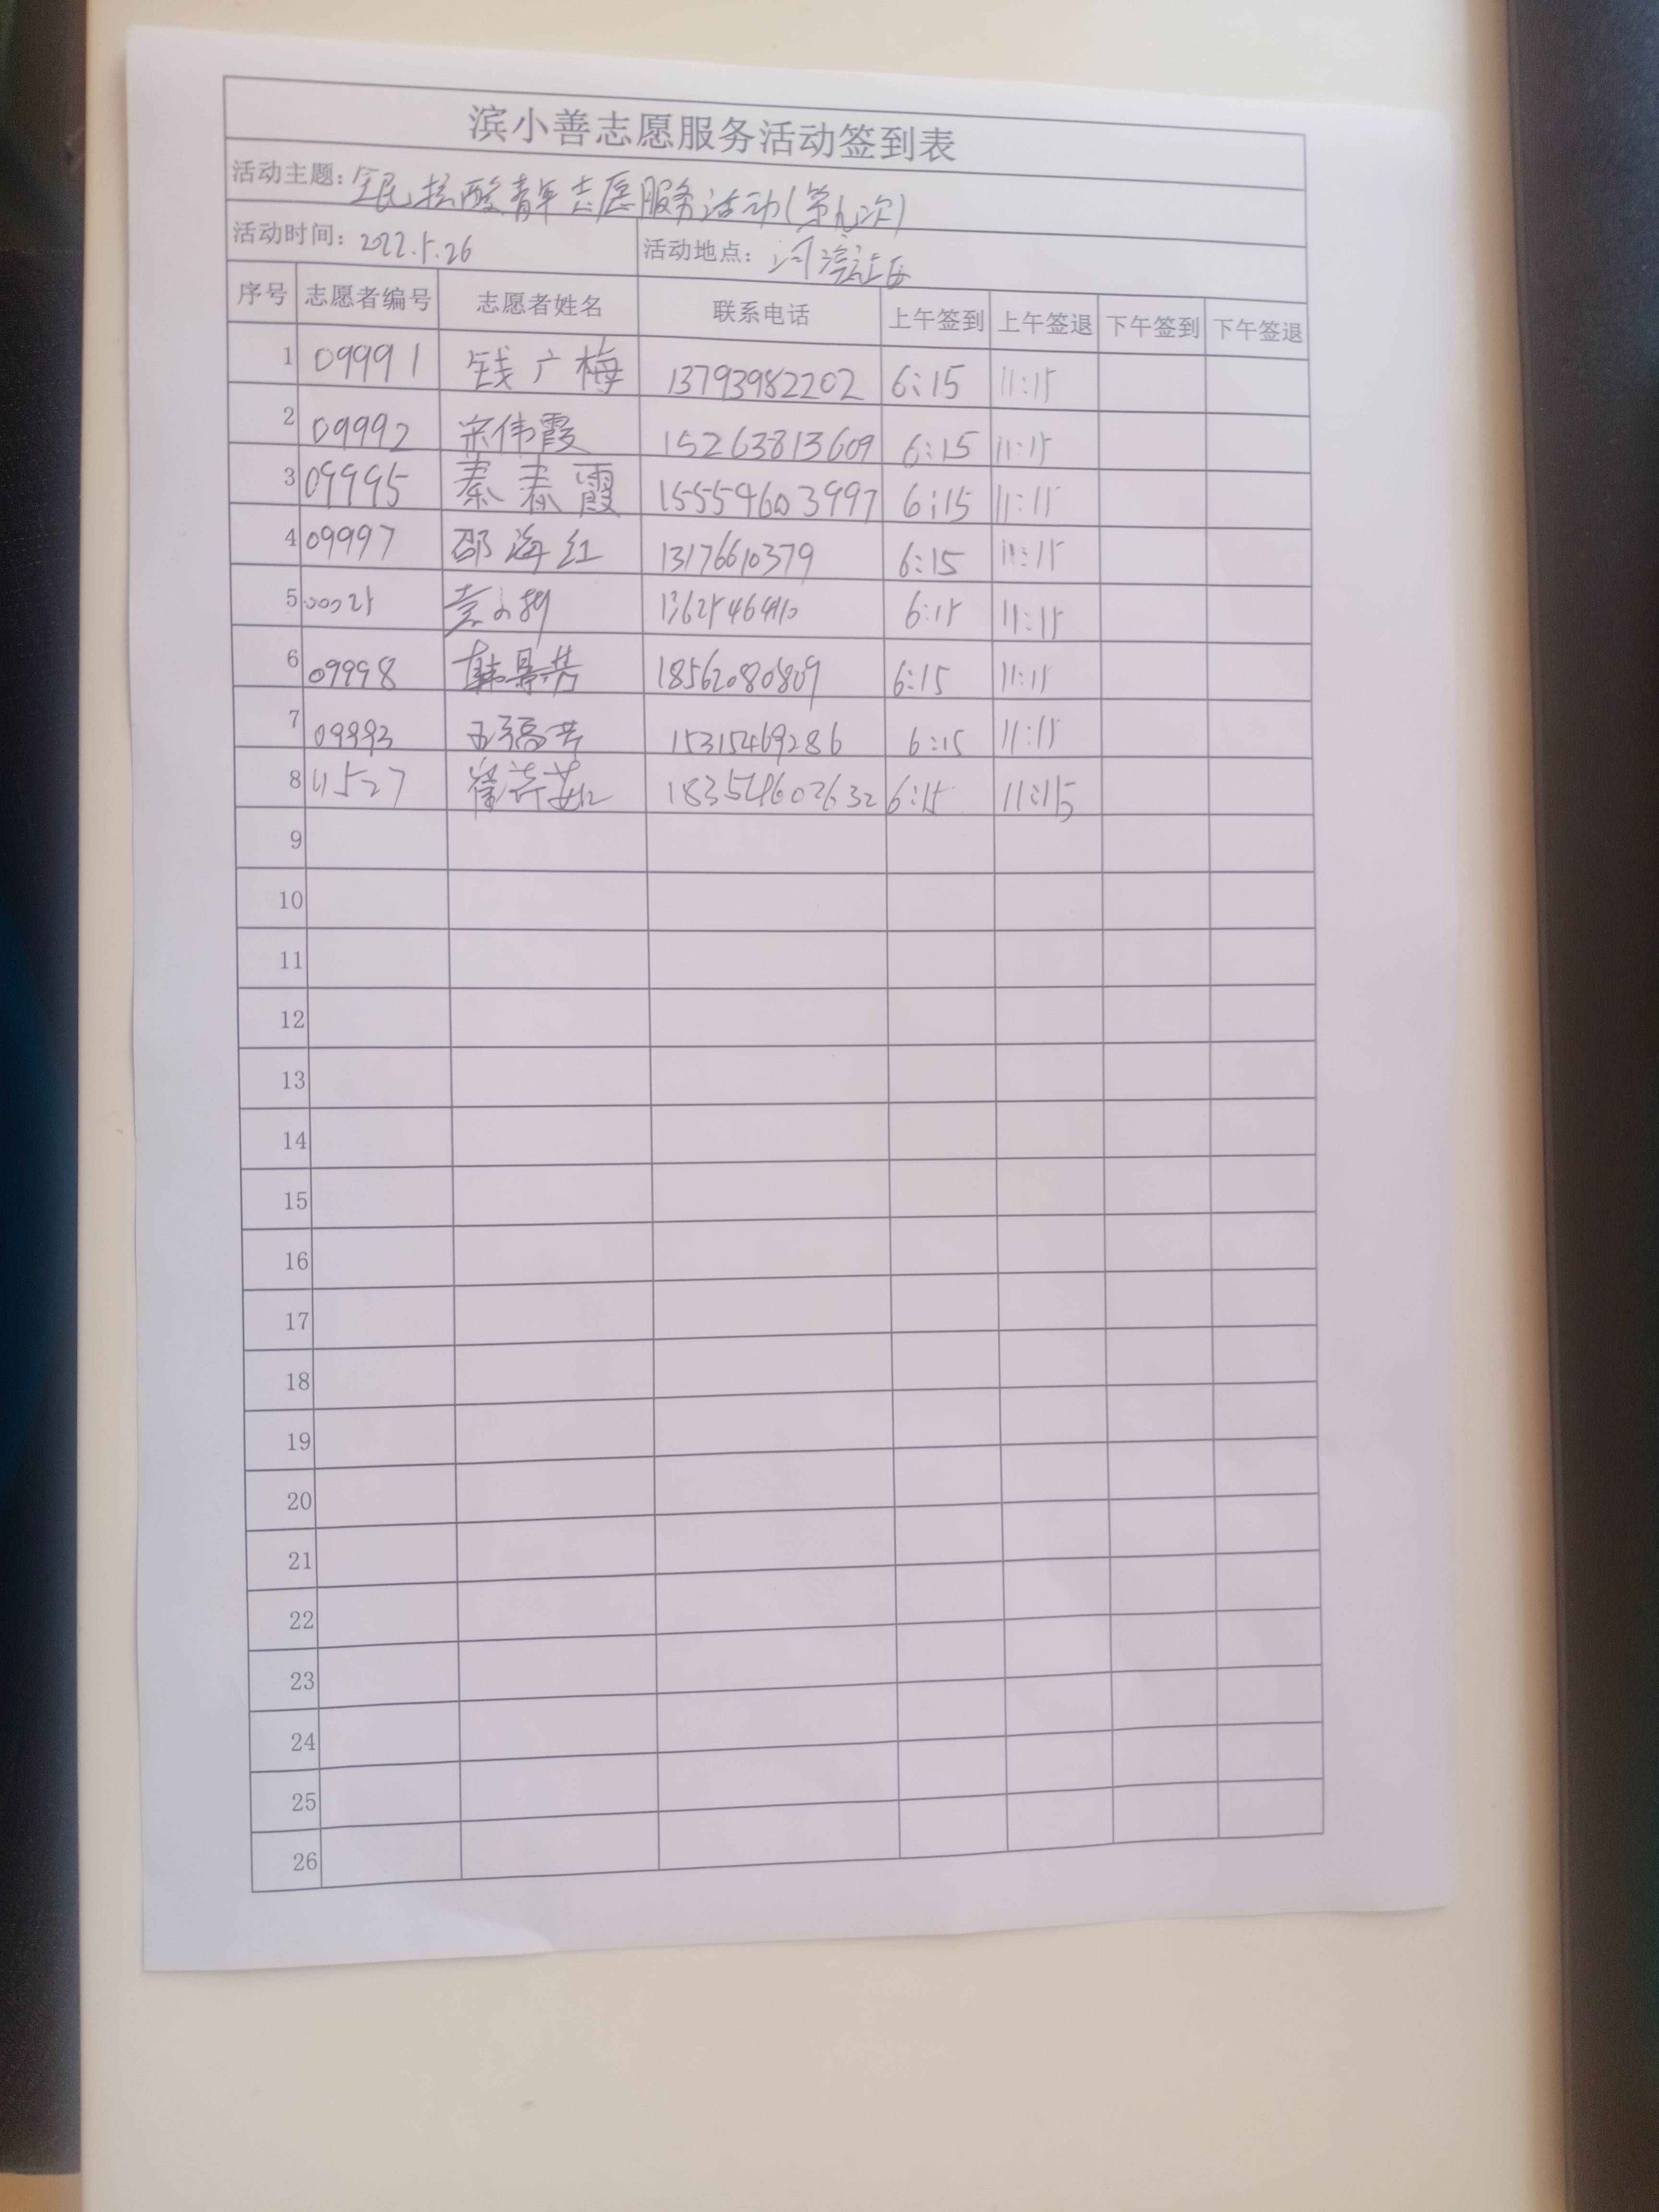 滨小善志愿服务活动签到表
活动主题：全民核酸青年志愿服务活动(第九次)
活动时间：2022.5.26 活动地点：河滨社区
序号 志愿者编号 志愿者姓名 联系电话 上午签到 上午签退 下午签到 下午签退
1 09991 钱广梅 13793982202 6:15 11:15
2 09992 宋伟霞 15263813609 6:15 11:15
3 09995 秦春霞 15554603997 6:15 11:15
4 09997 邵海红 13176610379 6:15 11:15
5 6:15 11:15
6 09998 韩景芸 18562080809 6:15 11:15
7 09993 15315469286 6:15 11:15
8 11527 18354602632 6:15 11:15
9
10
11
12
13
14
15
16
17
18
19
20
21
22
23
24
25
26